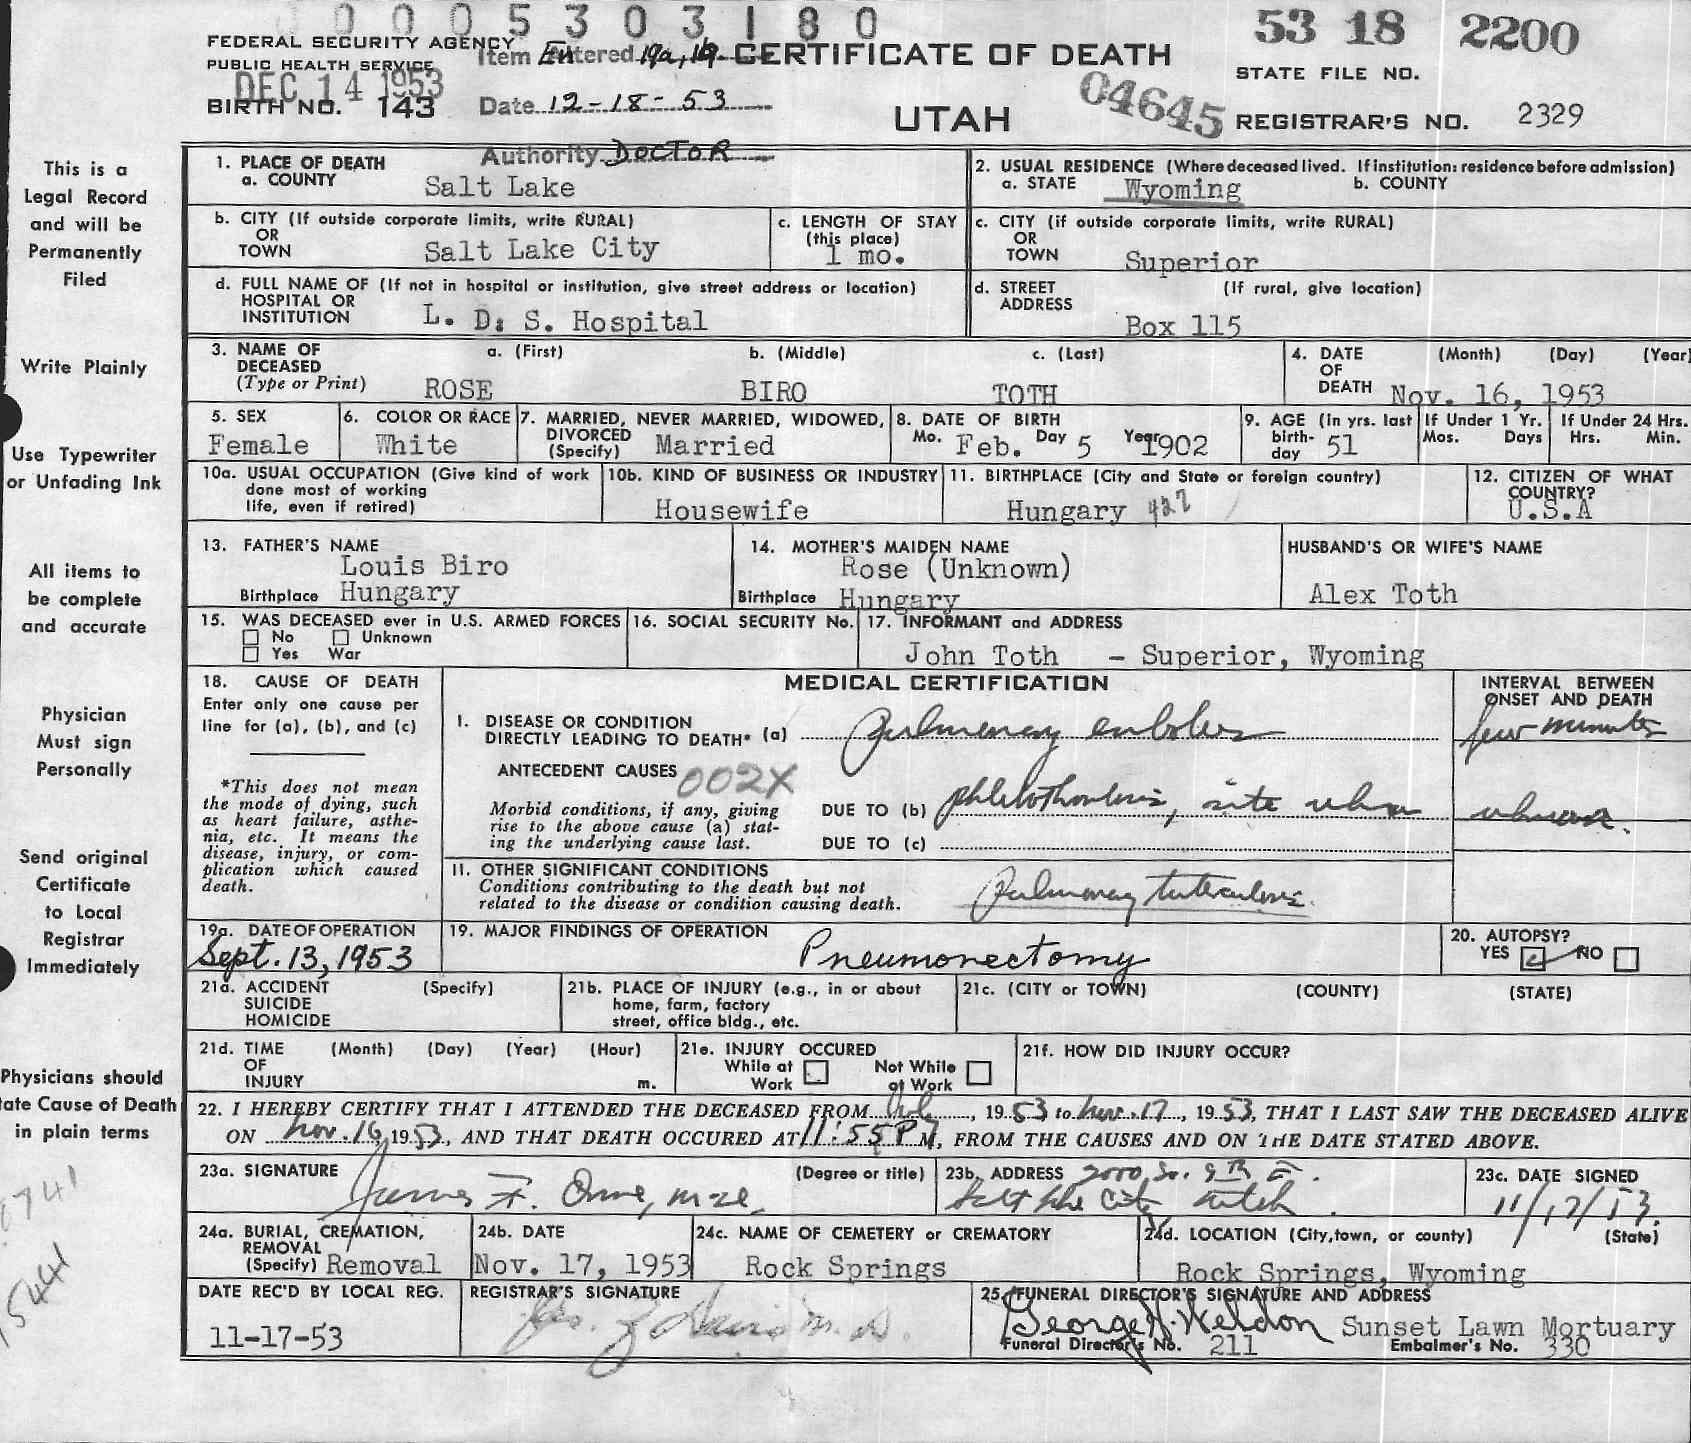 0005303180
53 18 2200
FEDERAL SECURITY AGENCY
PUBLIC HEALTH SERVICE
DEC 14 1953
BIRTH NO. 143
Item Entered 19a, 19
Date 12-18-53
Authority DOCTOR
CERTIFICATE OF DEATH
UTAH
STATE FILE NO.
04645
REGISTRAR'S NO. 2329
This is a
Legal Record
and will be
Permanently
Filed
Write Plainly
Use Typewriter
or Unfading Ink
All items to
be complete
and accurate
Physician
Must sign
Personally
Send original
Certificate
to Local
Registrar
Immediately
Physicians should
tate Cause of Death
in plain terms
1. PLACE OF DEATH
a. COUNTY Salt Lake
2. USUAL RESIDENCE (Where deceased lived. If institution: residence before admission)
a. STATE Wyoming b. COUNTY
b. CITY (If outside corporate limits, write RURAL)
OR
TOWN Salt Lake City
c. LENGTH OF STAY
(this place)
1 mo.
c. CITY (if outside corporate limits, write RURAL)
OR
TOWN Superior
d. FULL NAME OF (If not in hospital or institution, give street address or location)
HOSPITAL OR
INSTITUTION L. D. S. Hospital
d. STREET (If rural, give location)
ADDRESS
Box 115
3. NAME OF DECEASED (Type or Print)
a. (First) b. (Middle) c. (Last)
ROSE BIRO TOTH
4. DATE OF DEATH (Month) (Day) (Year)
Nov. 16, 1953
5. SEX
Female
6. COLOR OR RACE
White
7. MARRIED, NEVER MARRIED, WIDOWED,
DIVORCED
(Specify) Married
8. DATE OF BIRTH
Mo. Feb. Day 5 Year 1902
9. AGE (in yrs. last
birth-
day 51
If Under 1 Yr.
Mos. Days
If Under 24 Hrs.
Hrs. Min.
10a. USUAL OCCUPATION (Give kind of work
done most of working
life, even if retired)
10b. KIND OF BUSINESS OR INDUSTRY
Housewife
11. BIRTHPLACE (City and State or foreign country)
Hungary 427
12. CITIZEN OF WHAT
COUNTRY?
U.S.A
13. FATHER'S NAME
Louis Biro
Birthplace Hungary
14. MOTHER'S MAIDEN NAME
Rose (Unknown)
Birthplace Hungary
HUSBAND'S OR WIFE'S NAME
Alex Toth
15. WAS DECEASED ever in U.S. ARMED FORCES
No Unknown
Yes War
16. SOCIAL SECURITY No.
17. INFORMANT and ADDRESS
John Toth - Superior, Wyoming
18. CAUSE OF DEATH
Enter only one cause per
line for (a), (b), and (c)
*This does not mean
the mode of dying, such
as heart failure, asthe-
nia, etc. It means the
disease, injury, or com-
plication which caused
death.
MEDICAL CERTIFICATION
INTERVAL BETWEEN
ONSET AND DEATH
I. DISEASE OR CONDITION
DIRECTLY LEADING TO DEATH* (a) pulmonary embolus few minutes
ANTECEDENT CAUSES 002X
Morbid conditions, if any, giving
rise to the above cause (a) stat-
ing the underlying cause last.
DUE TO (b) phlebothrombosis, site unknown unknown.
DUE TO (c)
11. OTHER SIGNIFICANT CONDITIONS
Conditions contributing to the death but not
related to the disease or condition causing death.
Pulmonary tuberculosis.
19a. DATE OF OPERATION
Sept. 13, 1953
19. MAJOR FINDINGS OF OPERATION
Pneumonectomy
20. AUTOPSY?
YES NO
21a. ACCIDENT (Specify)
SUICIDE
HOMICIDE
21b. PLACE OF INJURY (e.g., in or about
home, farm, factory
street, office bldg., etc.
21c. (CITY or TOWN) (COUNTY) (STATE)
21d. TIME (Month) (Day) (Year) (Hour)
OF
INJURY m.
21e. INJURY OCCURED
While at Work Not While at Work
21f. HOW DID INJURY OCCUR?
22. I HEREBY CERTIFY THAT I ATTENDED THE DECEASED FROM , 1953 to Nov. 17, 1953, THAT I LAST SAW THE DECEASED ALIVE
ON Nov. 16, 1953, AND THAT DEATH OCCURED AT 11:55 P M, FROM THE CAUSES AND ON THE DATE STATED ABOVE.
23a. SIGNATURE (Degree or title)
James F. Orme, M.D.
23b. ADDRESS 2000 So. 9th E.
Salt Lake City Utah.
23c. DATE SIGNED
11/17/53.
24a. BURIAL, CREMATION,
REMOVAL
(Specify) Removal
24b. DATE
Nov. 17, 1953
24c. NAME OF CEMETERY or CREMATORY
Rock Springs
24d. LOCATION (City, town, or county) (State)
Rock Springs, Wyoming
DATE REC'D BY LOCAL REG.
11-17-53
REGISTRAR'S SIGNATURE
M.D.
25. FUNERAL DIRECTOR'S SIGNATURE AND ADDRESS
George H. Weldon Sunset Lawn Mortuary
Funeral Director's No. 211 Embalmer's No. 330